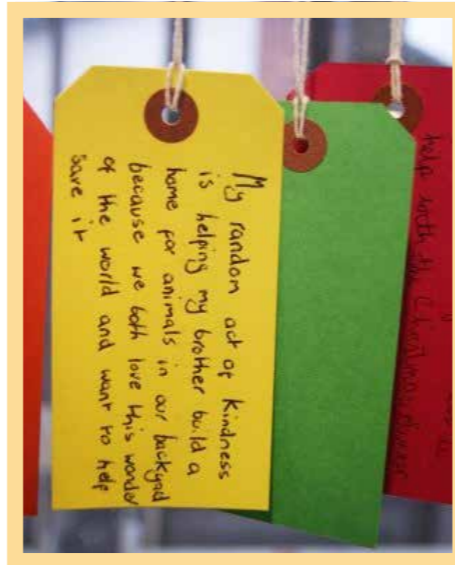 My random act of kindness
is helping my brother build a
home for animals in our backyad
because we both love this wonder
of the world and want to help
save it
help with the Christmas dinner